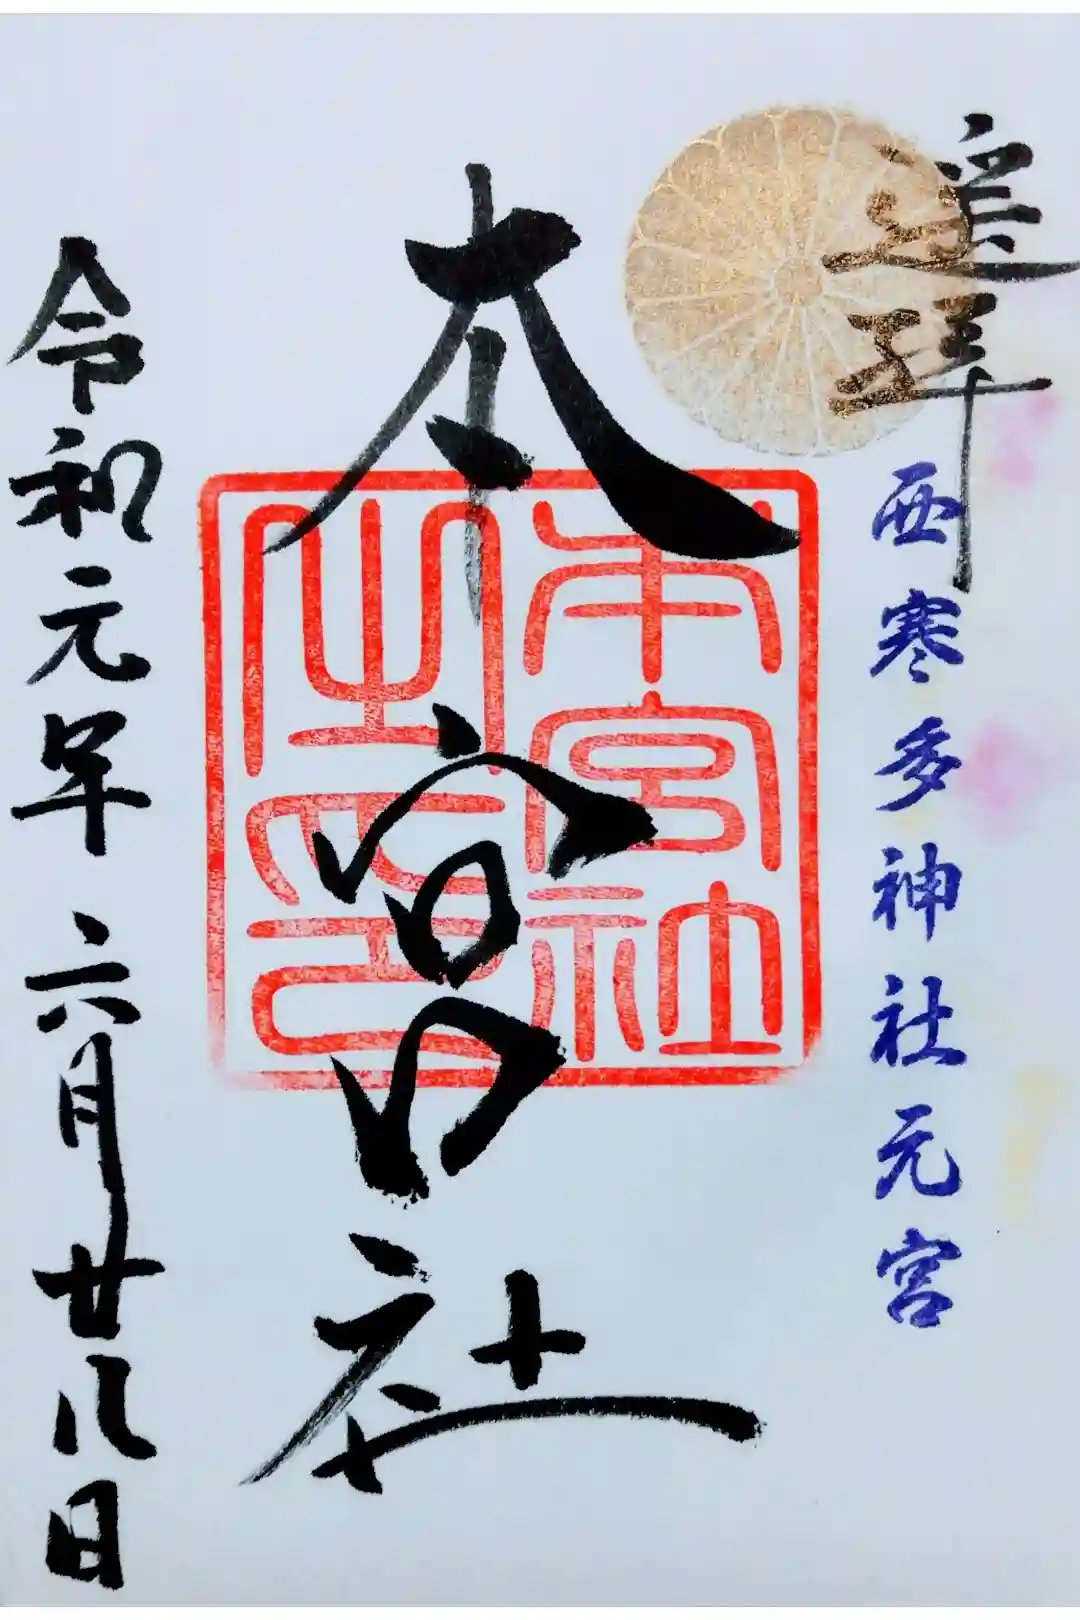 奉拝
西寒多神社元宮
本宮社
本宮社之印
令和元年六月廿八日